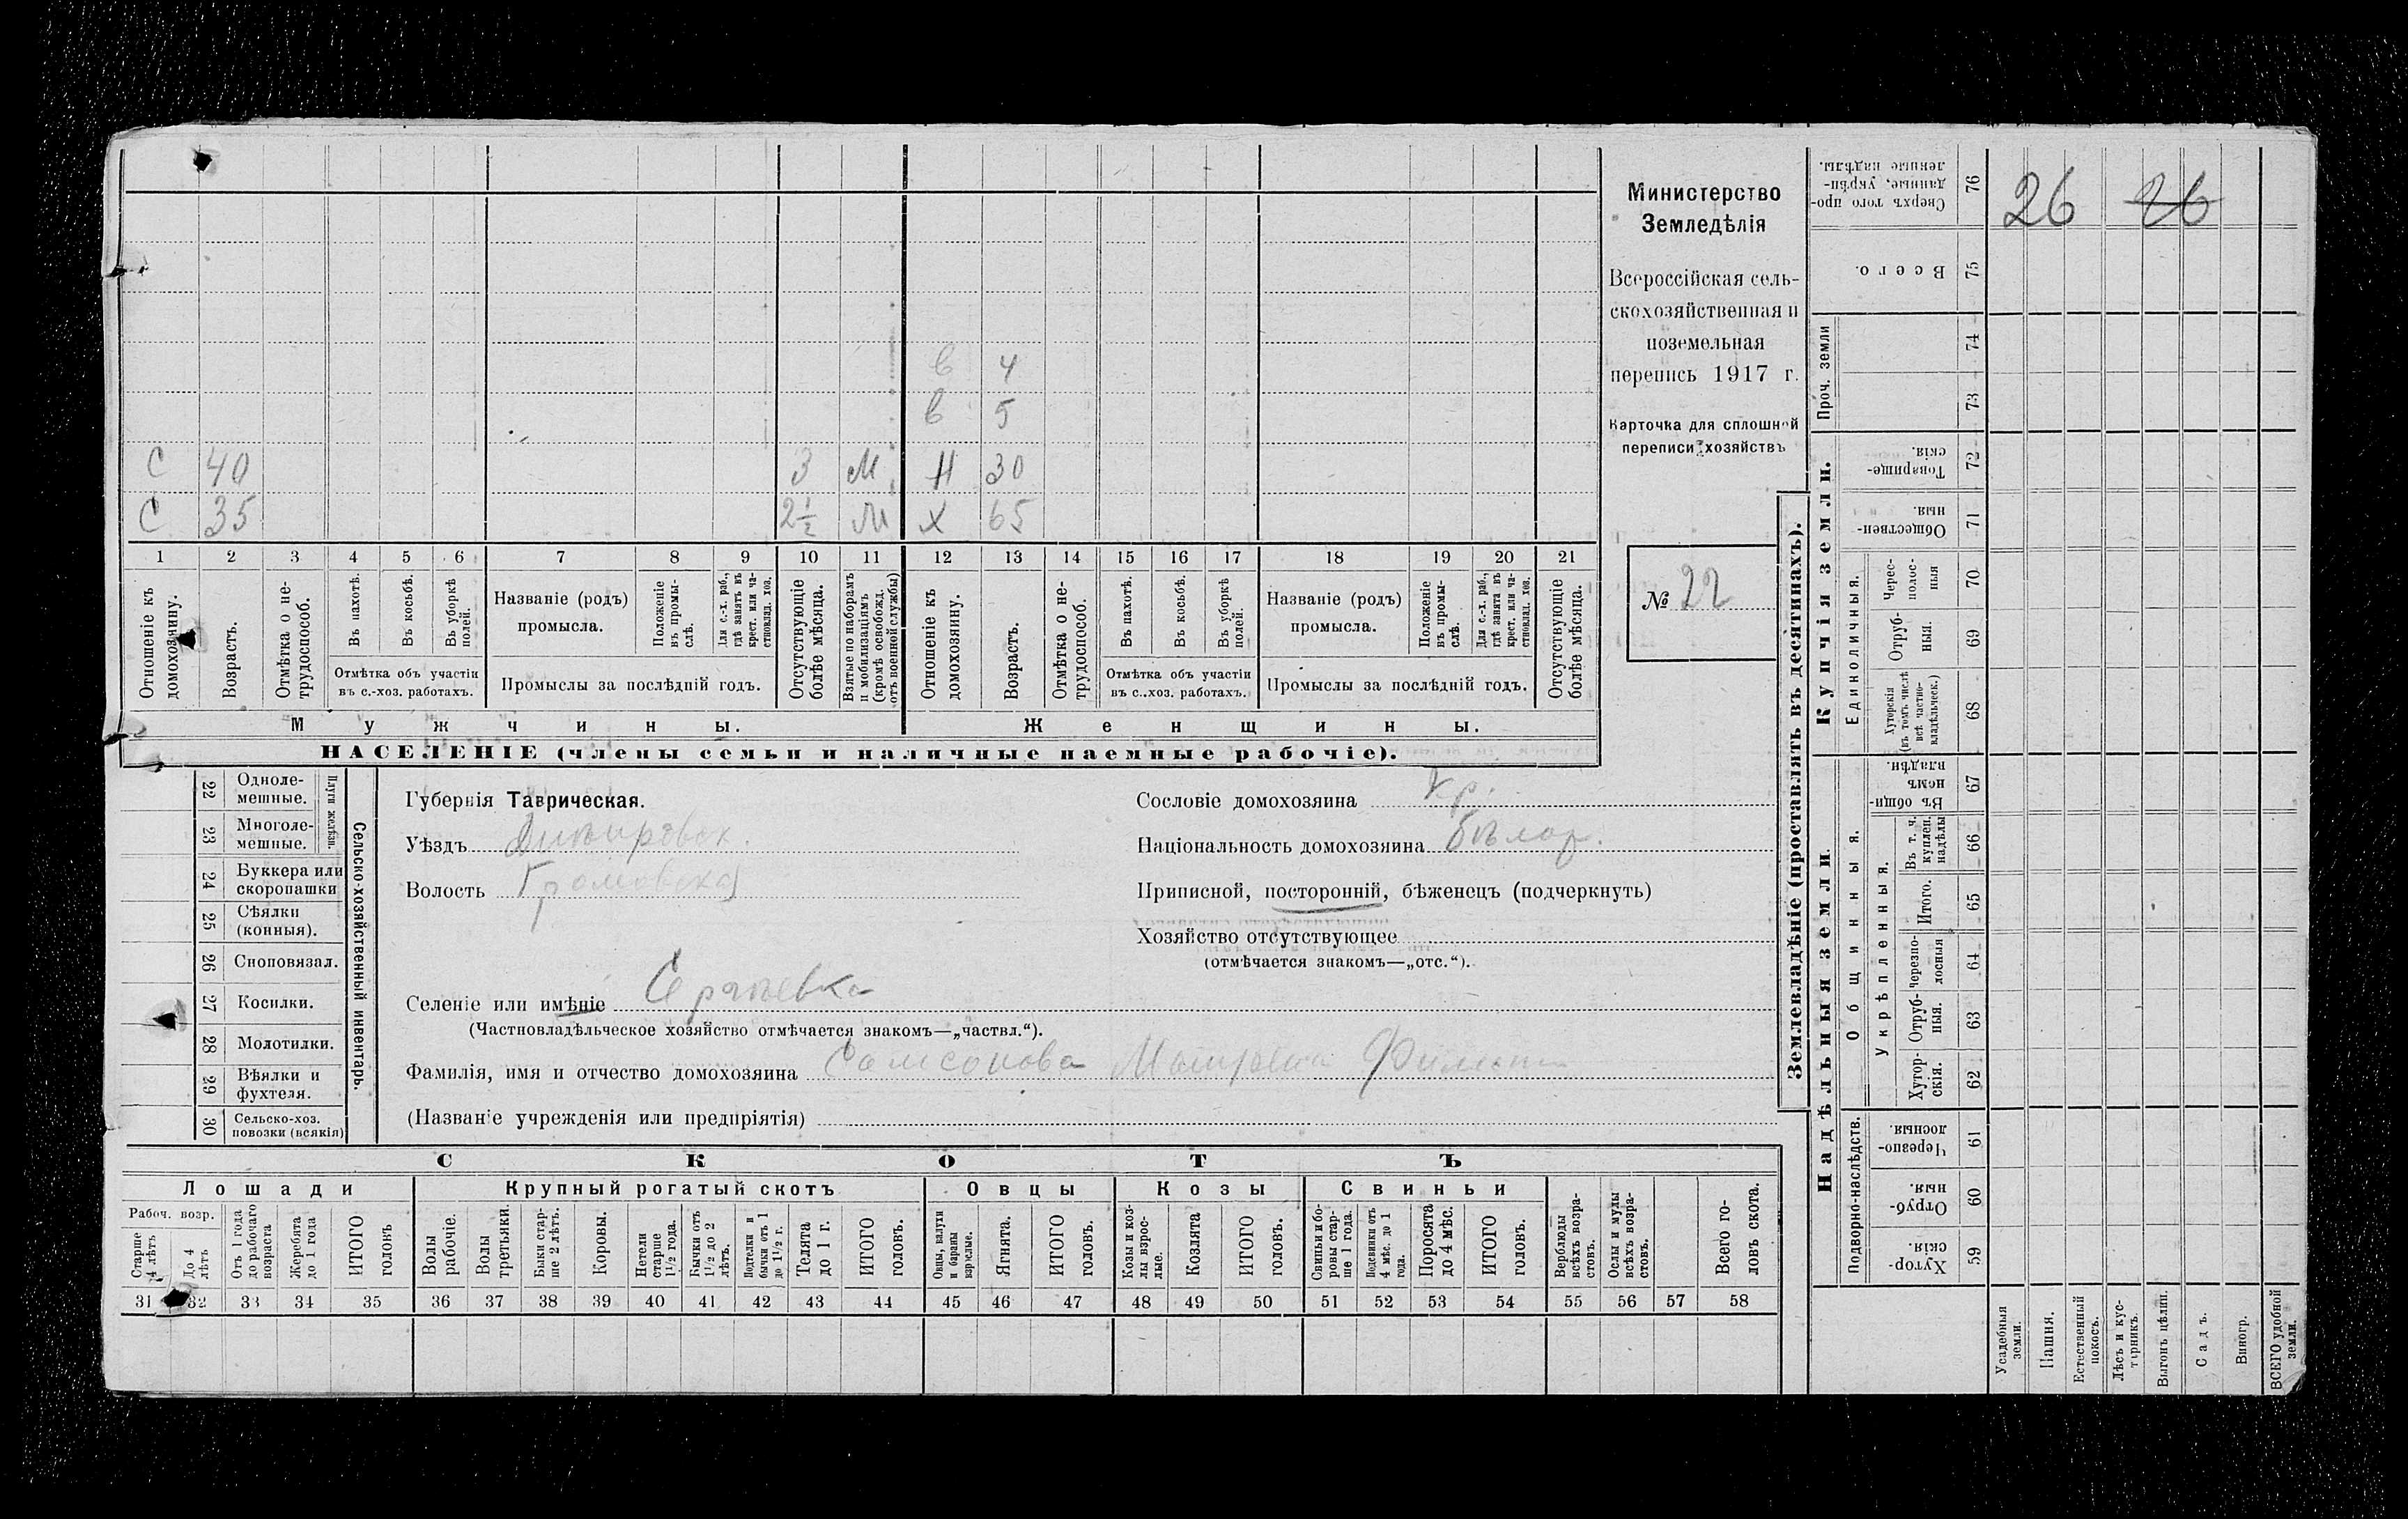 Министерство
Земледѣлія
Всероссійская сель-
скохозяйственная и
поземельная
перепись 1917 г.
Карточка для сплошной
переписи хозяйствъ
№ 22
в 4
в 5
С 40 3 М Н 30
С 35 2½ М Х 65
1 2 3 4 5 6 7 8 9 10 11 12 13 14 15 16 17 18 19 20 21
Отношеніе къ домохозяину.
Возрастъ.
Отмѣтка о не-трудоспособ.
Въ пахотѣ.
Въ косьбѣ.
Въ уборкѣ полей.
Отмѣтка объ участіи
въ с.-хоз. работахъ.
Названіе (родъ)
промысла.
Положеніе въ промы-слѣ.
Для с.-х. раб., гдѣ занятъ въ крест. или ча-стновлад. хоз.
Промыслы за послѣдній годъ.
Отсутствующіе болѣе мѣсяца.
Взятые по наборамъ и мобилизаціямъ (кромѣ освобожд. отъ военной службы)
Отношеніе къ домохозяину.
Возрастъ.
Отмѣтка о не-трудоспособ.
Въ пахотѣ.
Въ косьбѣ.
Въ уборкѣ полей.
Отмѣтка объ участіи
въ с..хоз. работахъ.
Названіе (родъ)
промысла.
Положеніе въ промы-слѣ.
Для с.-х. раб., гдѣ занята въ крест. или ча-стновлад. хоз.
Промыслы за послѣдній годъ.
Отсутствующіе болѣе мѣсяца.
Мужчины. Женщины.
НАСЕЛЕНІЕ (члены семьи и наличные наемные рабочіе).
22 Одноле-мешные.
23 Многоле-мешные.
Плуги желѣзн.
24 Буккера или скоропашки
25 Сѣялки (конныя).
26 Сноповязал.
27 Косилки.
28 Молотилки.
29 Вѣялки и фухтеля.
30 Сельско-хоз. повозки (всякія)
Сельско-хозяйственный инвентарь.
Губернія Таврическая.
Уѣздъ Днѣпровск.
Волость Громовская
Сословіе домохозяина кр.
Національность домохозяина бѣлор.
Приписной, посторонній, бѣженецъ (подчеркнуть)
Хозяйство отсутствующее
(отмѣчается знакомъ—„отс.“).
Селеніе или имѣніе
(Частновладѣльческое хозяйство отмѣчается знакомъ—„частвл.“).
Фамилія, имя и отчество домохозяина Самсонова Матрена
(Названіе учрежденія или предпріятія)
СКОТЪ
Лошади Крупный рогатый скотъ Овцы Козы Свиньи
Рабоч. возр.
Старше 4 лѣтъ
До 4 лѣтъ
Отъ 1 года до рабочаго возраста
Жеребята до 1 года
ИТОГО головъ
Волы рабочіе.
Волы третьяки.
Быки стар-ше 2 лѣтъ.
Коровы.
Нетели старше 1½ года.
Бычки отъ 1½ до 2 лѣтъ.
Подтелки и бычки отъ 1 до 1½ г.
Телята до 1 г.
ИТОГО головъ.
Овцы, валухи и бараны взрослые.
Ягнята.
ИТОГО головъ.
Козы и коз-лы взрос-лые.
Козлята
ИТОГО головъ.
Свиньи и бо-ровы стар-ше 1 года.
Подсвинки отъ 4 мѣс. до 1 года.
Поросята до 4 мѣс.
ИТОГО головъ.
Верблюды всѣхъ возра-стовъ.
Ослы и мулы всѣхъ возра-стовъ.
Всего го-ловъ скота.
31 32 33 34 35 36 37 38 39 40 41 42 43 44 45 46 47 48 49 50 51 52 53 54 55 56 57 58
Землевладѣніе (проставлять въ десятинахъ).
Сверхъ того про-данные, укрѣп-ленные надѣлы. 76 26 26
Всего. 75
Проч. земли
74
73
Купчія земли.
Товарище-скія. 72
Обществен-ныя. 71
Единоличныя.
Черес-полос-ныя 70
Отруб-ныя. 69
Хуторскія (въ томъ числѣ всѣ частно-владѣльческ.) 68
Надѣльныя земли
Общинныя.
Въ общи-номъ владѣн. 67
Укрѣпленныя.
Въ т. ч. куплен. надѣлы 66
Итого. 65
Черезпо-лосныя 64
Отруб-ныя. 63
Хутор-скія. 62
Подворно-наслѣдств.
Черезпо-лосныя. 61
Отруб-ныя. 60
Хутор-скія. 59
Усадебныя земли.
Пашня.
Естественный покосъ.
Лѣсъ и кус-тарникъ.
Выгонъ цѣлин.
Садъ.
Виногр.
ВСЕГО удобной земли.